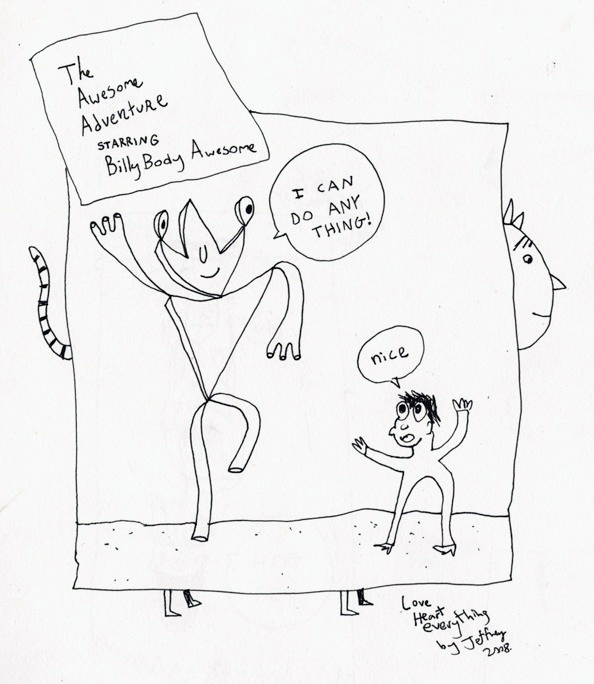 The
Awesome
Adventure
STARRING
Billy Body Awesome
I CAN
DO ANY
THING!
nice
Love
Heart
everything
by Jeffrey
2008.